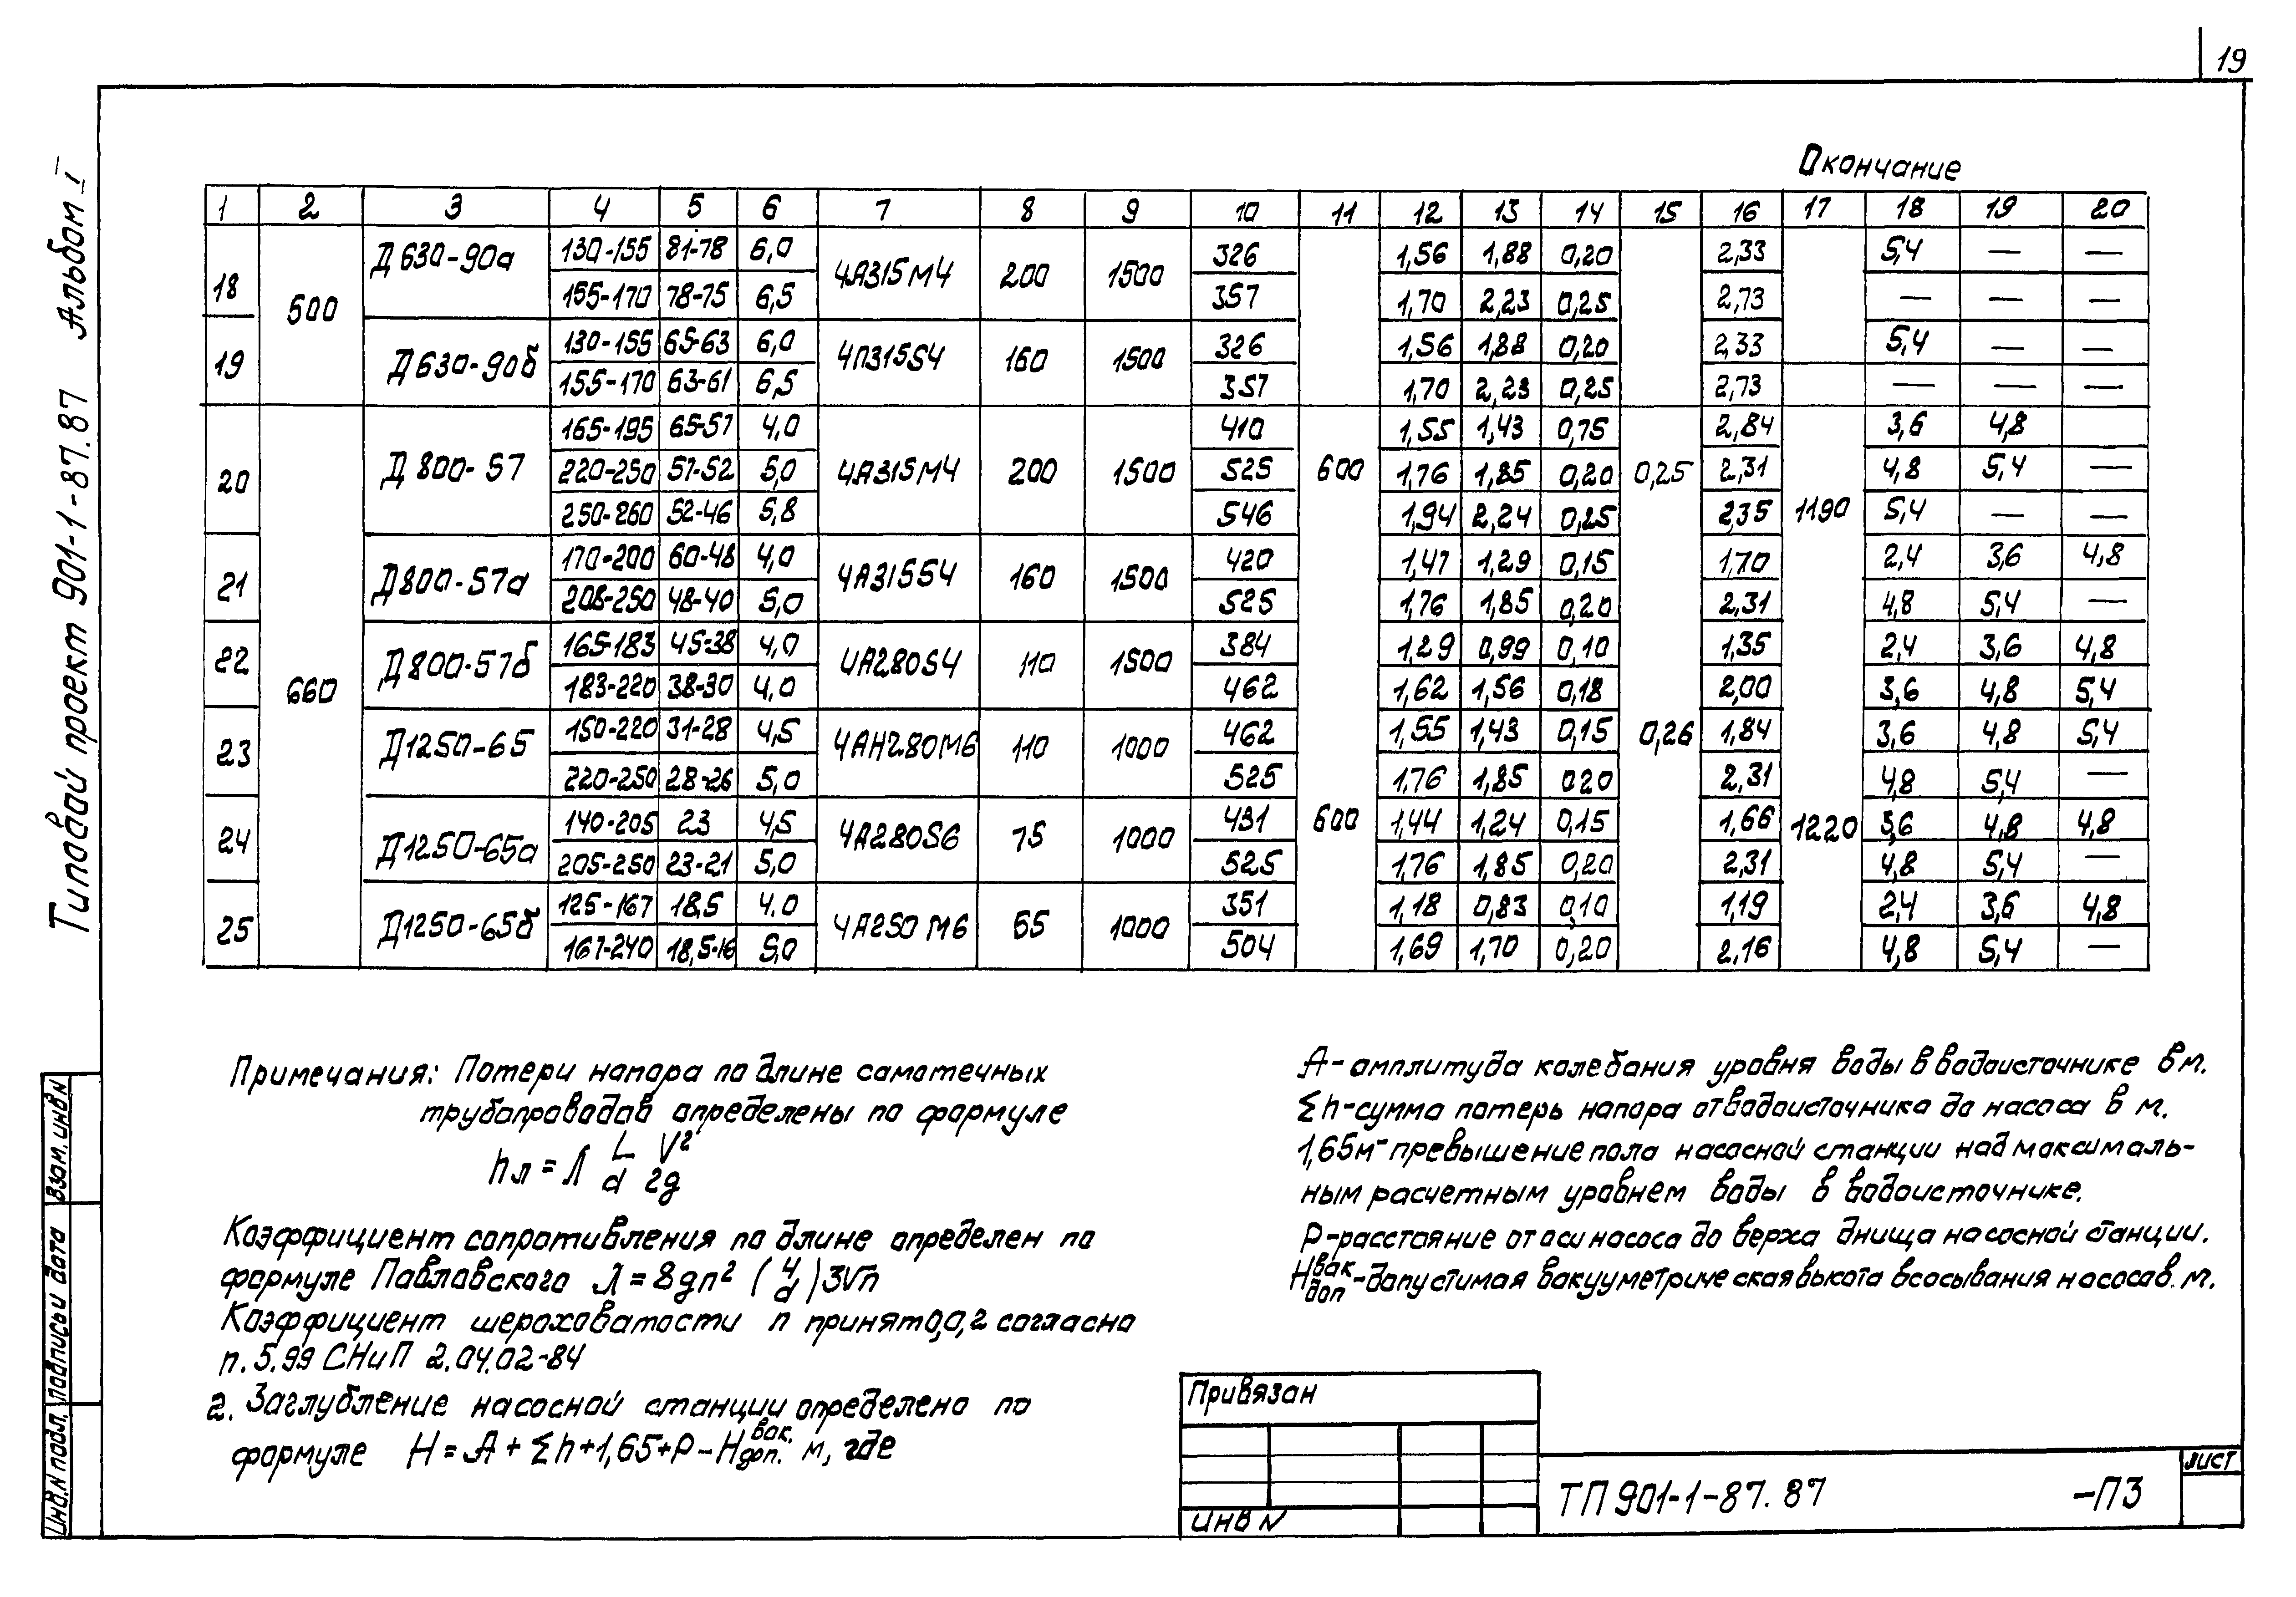 19
Типовой проект 901-1-87.87 Альбом I
Окончание
1 2 3 4 5 6 7 8 9 10 11 12 13 14 15 16 17 18 19 20
18 500 Д630-90а 130-155 81-78 6,0 4А315М4 200 1500 326 1,56 1,88 0,20 2,33 5,4 — —
155-170 78-75 6,5 357 1,70 2,23 0,25 2,73 — — —
19 Д630-90б 130-155 65-63 6,0 4П315S4 160 1500 326 1,56 1,88 0,20 2,33 5,4 — —
155-170 63-61 6,5 357 1,70 2,23 0,25 2,73 — — —
20 660 Д800-57 165-195 65-57 4,0 4А315М4 200 1500 410 600 1,55 1,43 0,75 0,25 2,84 1190 3,6 4,8
220-250 57-52 5,0 525 1,76 1,85 0,20 2,31 4,8 5,4 —
250-260 52-46 5,8 546 1,94 2,24 0,25 2,35 5,4 — —
21 Д800-57а 170-200 60-48 4,0 4А315S4 160 1500 420 1,47 1,29 0,15 1,70 2,4 3,6 4,8
208-250 48-40 5,0 525 1,76 1,85 0,20 2,31 4,8 5,4 —
22 Д800-57б 165-183 45-38 4,0 4А280S4 110 1500 384 1,29 0,99 0,10 1,35 2,4 3,6 4,8
183-220 38-30 4,0 462 1,62 1,56 0,18 2,00 3,6 4,8 5,4
23 Д1250-65 150-220 31-28 4,5 4АН280М6 110 1000 462 600 1,55 1,43 0,15 0,26 1,84 1220 3,6 4,8 5,4
220-250 28-26 5,0 525 1,76 1,85 0,20 2,31 4,8 5,4 —
24 Д1250-65а 140-205 23 4,5 4А280S6 75 1000 431 1,44 1,24 0,15 1,66 3,6 4,8 4,8
205-250 23-21 5,0 525 1,76 1,85 0,20 2,31 4,8 5,4 —
25 Д1250-65б 125-167 18,5 4,0 4А250М6 55 1000 351 1,18 0,83 0,10 1,19 2,4 3,6 4,8
167-240 18,5-16 5,0 504 1,69 1,70 0,20 2,16 4,8 5,4 —
Примечания: Потери напора по длине самотечных
трубопроводов определены по формуле
hл = λ L/d V²/2g
Коэффициент сопротивления по длине определен по
формуле Павловского λ = 8gn² (4/d) 3√n
Коэффициент шероховатости n принят 0,0,2 согласно
п. 5.99 СНиП 2.04.02-84
2. Заглубление насосной станции определено по
формуле H = A + Σh + 1,65 + P – H вак. доп. м, где
А – амплитуда колебания уровня воды в водоисточнике в м.
Σh – сумма потерь напора от водоисточника до насоса в м.
1,65м – превышение пола насосной станции над максималь-
ным расчетным уровнем воды в водоисточнике.
Р – расстояние от оси насоса до верха днища насосной станции.
H вак доп – допустимая вакуумметрическая высота всасывания насоса в. м.
Привязан
ИНВ N
ТП 901-1-87.87 -ПЗ
лист
Взам. инв N
Подпись и дата
Инв. N подл.